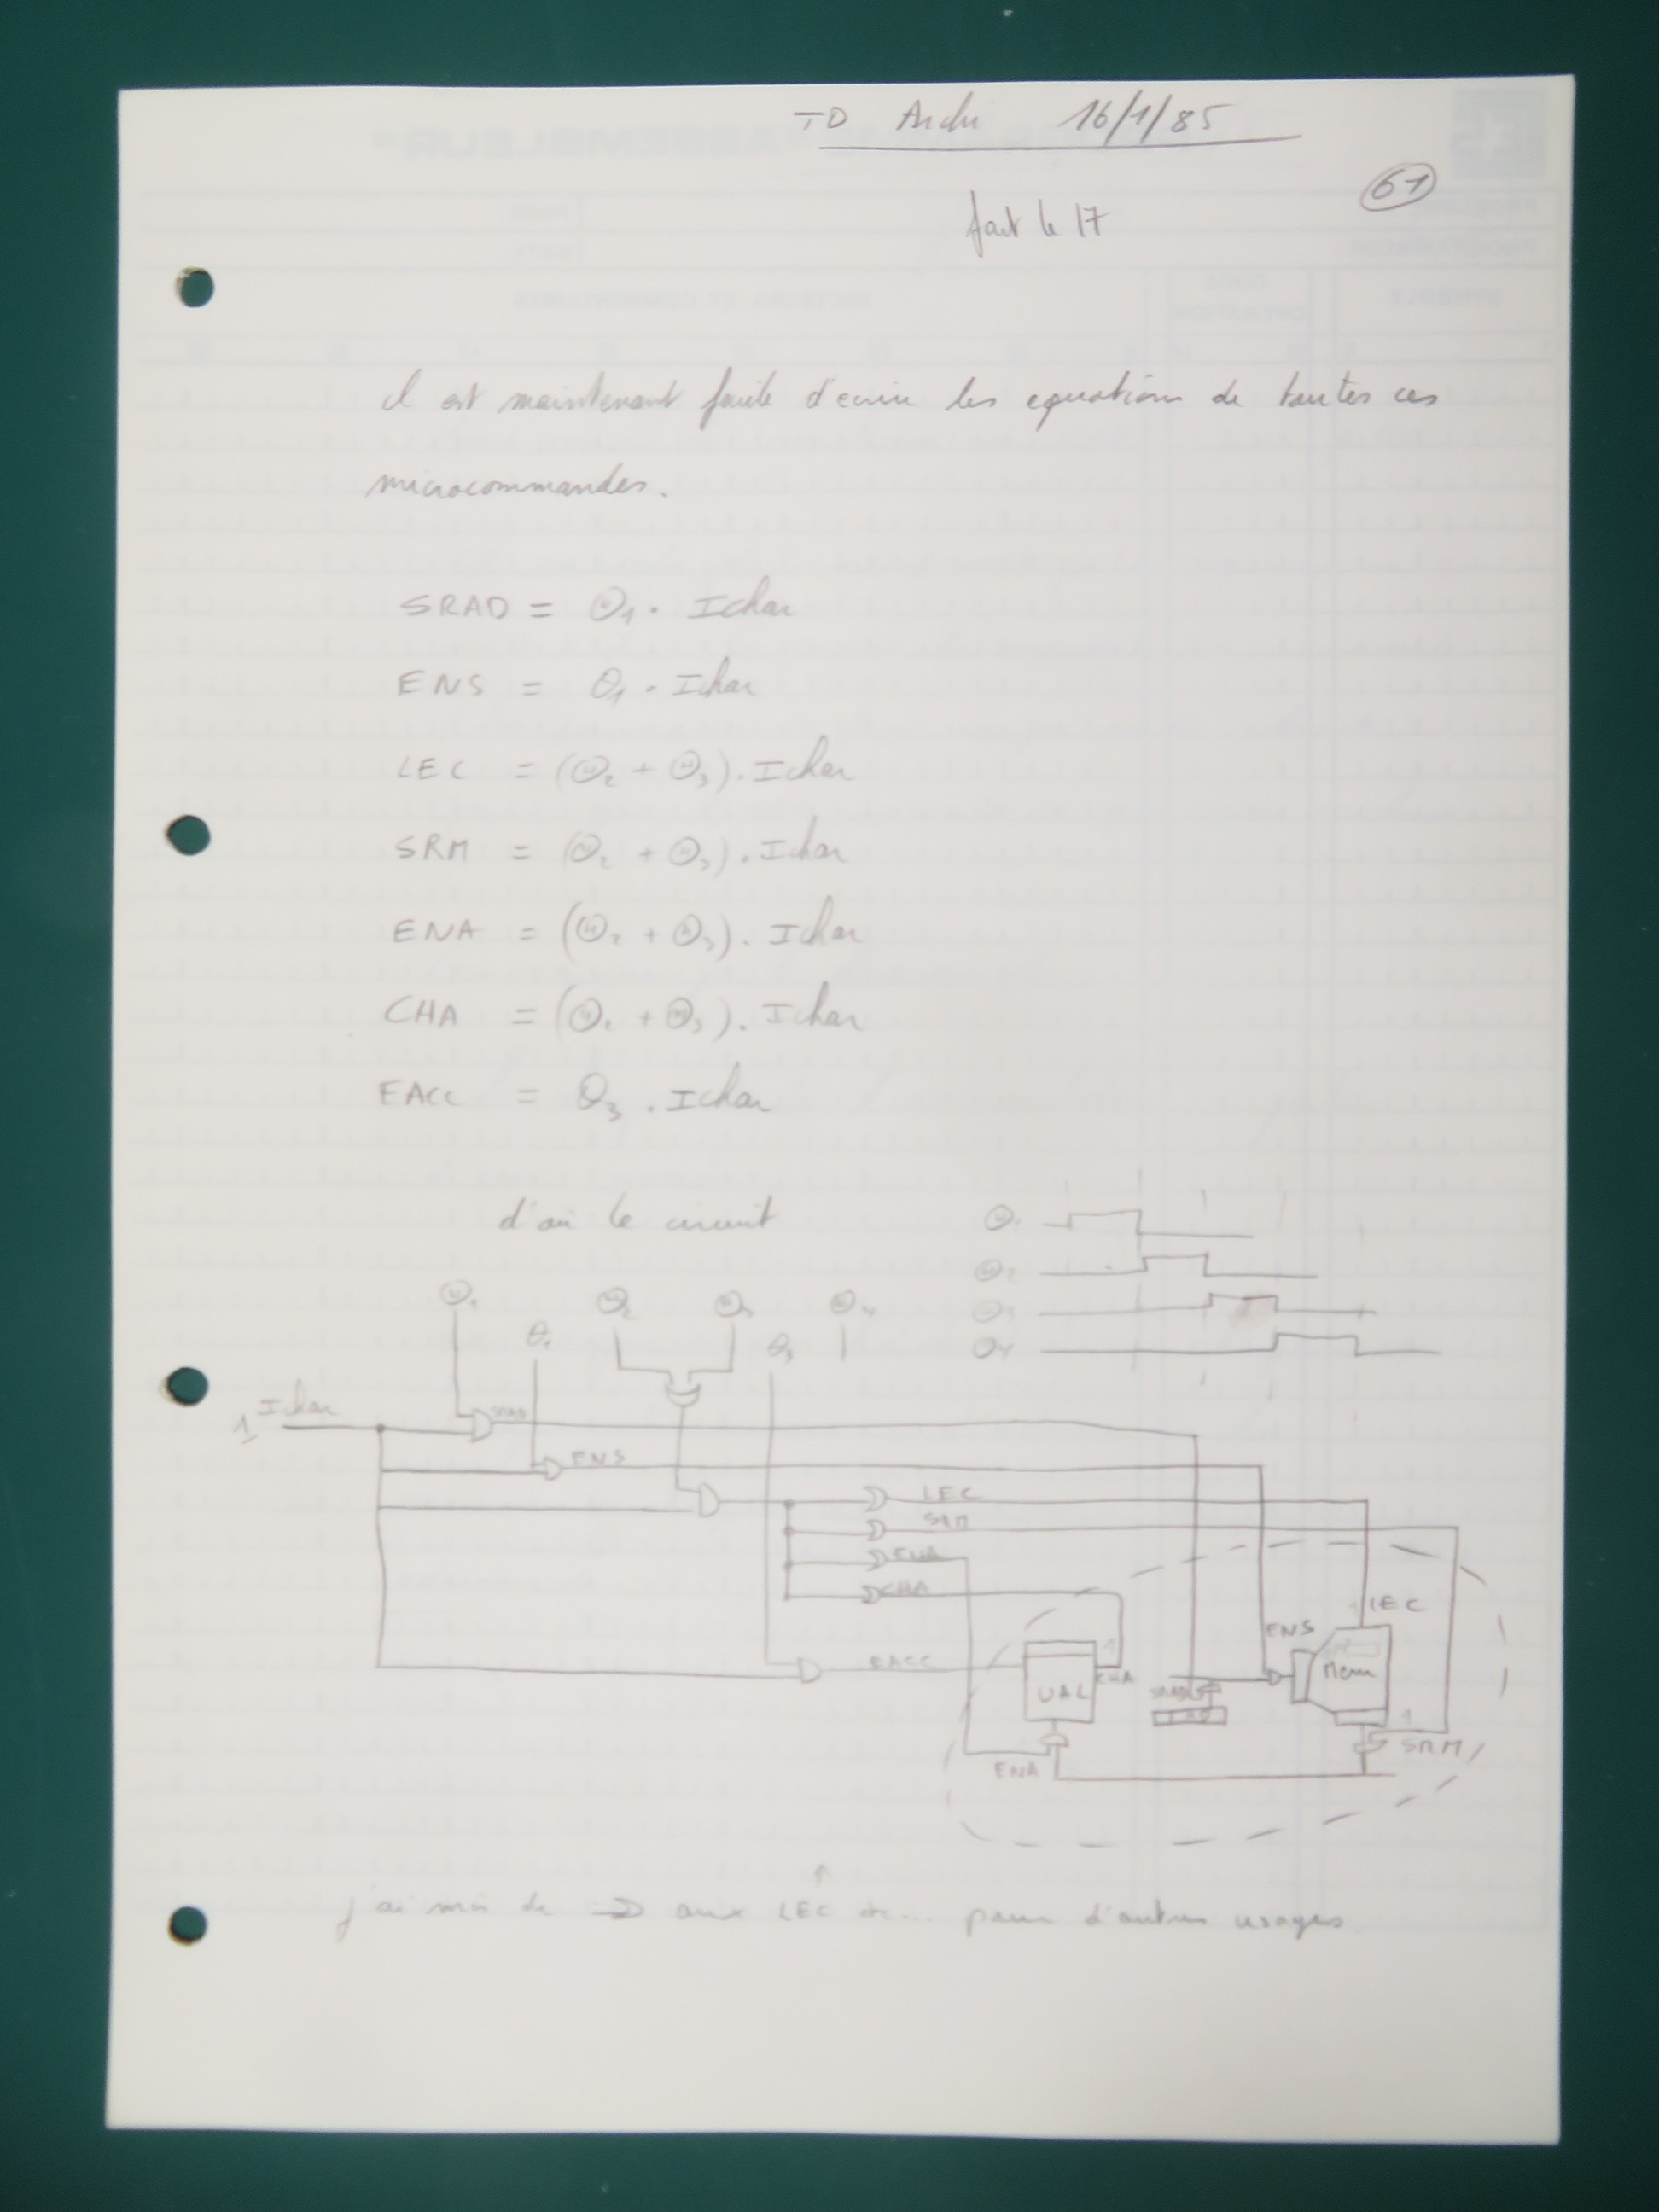 TD Archi 16/1/85
61
fait le 17
il est maintenant facile d'ecrire les equations de toutes ces
microcommandes.
SRAD = Θ1 . Ichar
ENS = θ1 . Ichar
LEC = (Θ2 + Θ3) . Ichar
SRM = (Θ2 + Θ3) . Ichar
ENA = (Θ2 + Θ3) . Ichar
CHA = (Θ2 + Θ3) . Ichar
EACC = θ3 . Ichar
d'où le circuit
Θ1
Θ2
Θ3
Θ4
Θ1 Θ2 Θ3 Θ4
θ1 θ3
1 Ichar
SRAD
ENS
LEC
SRM
ENA
CHA
EACC
LEC
ENS
Mem
1
CHA
UAL
SRAD
1
SRM
ENA
j'ai mis de aux LEC etc... pour d'autres usages.